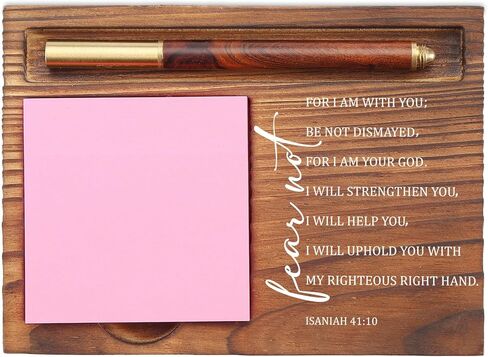 fear not
FOR I AM WITH YOU;
BE NOT DISMAYED,
FOR I AM YOUR GOD.
I WILL STRENGTHEN YOU,
I WILL HELP YOU,
I WILL UPHOLD YOU WITH
MY RIGHTEOUS RIGHT HAND.
ISANIAH 41:10